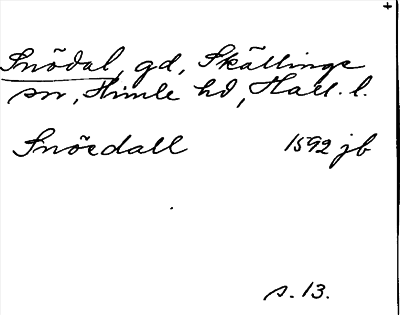 Snödal, gd, Skällinge
sn, Himle hd, Hall. l.
Snöedall 1592 jb
s. 13.